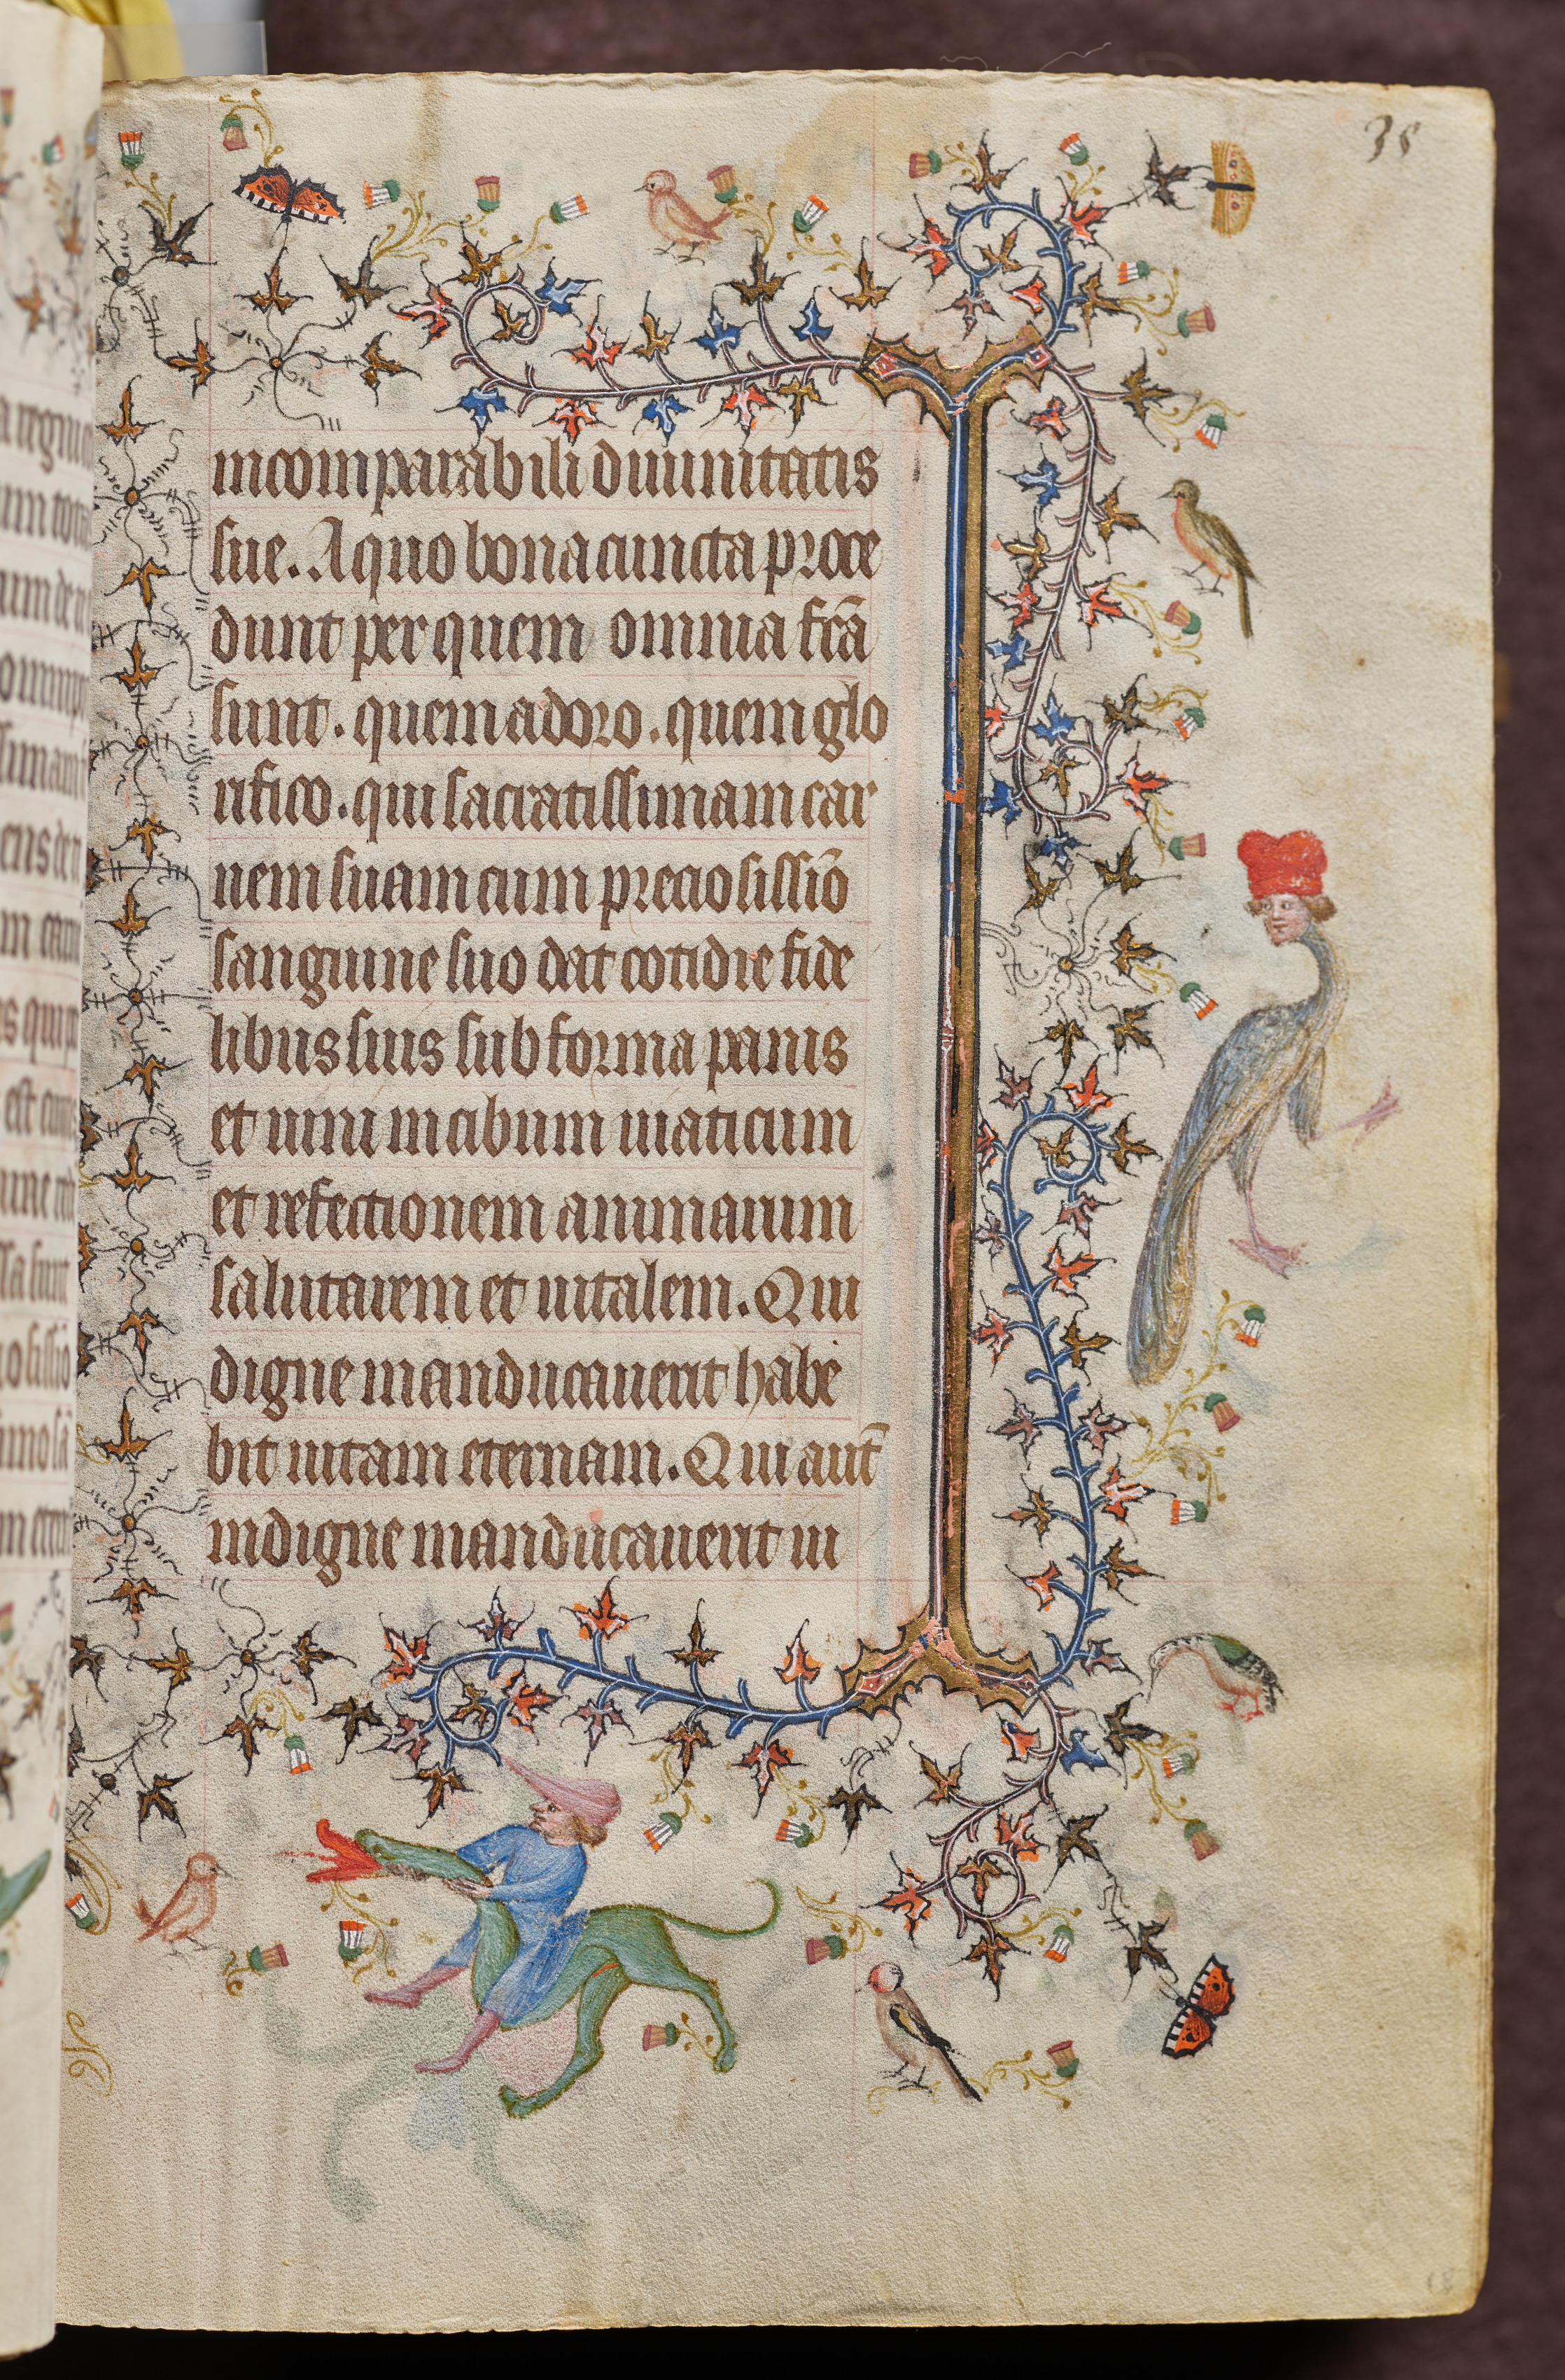 38
incomparabili diuinitatis
sue. A quo bona cuncta proce
dunt per quem omnia fc̄a
sunt. quem adoro. quem glo
rifico. qui sacratissimam car
nem suam cum preciosissīo
sanguine suo dat cotidie fide
libus suis sub forma panis
et uini in cibum uiaticum
et refectionem animarum
salutarem et uitalem. Qui
digne manducauerit habe
bit uitam eternam. Qui aut̄
indigne manducauerit iu